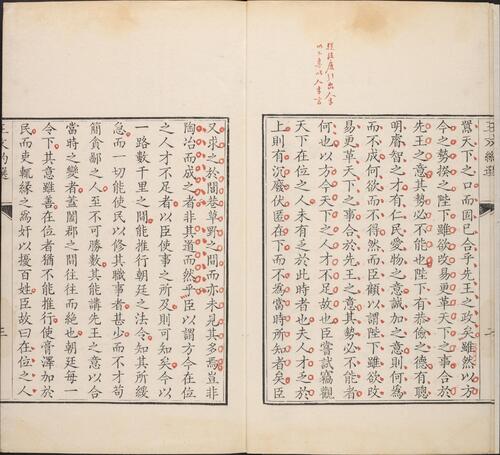 提後段並引出人才
以下專以人才言
囂天下之口而固已合乎先王之政矣雖然以方
今之勢揆之陛下雖欲改易更革天下之事合於
先王之意其勢必不能也陛下有恭儉之德有聰
明睿智之才有仁民愛物之意誠加之意則何為
而不成何欲而不得然而臣顧以謂陛下雖欲改
易更革天下之事合於先王之意其勢必不能者
何也以方今天下之人才不足故也臣嘗試竊觀
天下在位之人未有乏於此時者也夫人才乏於
上則有沉廢伏匿在下而不為當時所知者矣臣
又求之於閭巷草野之間而亦未見其多焉豈非
陶冶而成之者非其道而然乎臣以謂方今在位
之人才不足者以臣使事之所及則可知矣今以
一路數千里之間能推行朝廷之法令知其所緩
急而一切能使民以修其職事者甚少而不才苟
簡貪鄙之人至不可勝數其能講先王之意以合
當時之變者蓋闔郡之間往往而絕也朝廷每一
令下其意雖善在位者猶不能推行使膏澤加於
民而吏輒緣之為奸以擾百姓臣故曰在位之人
王文約選
三